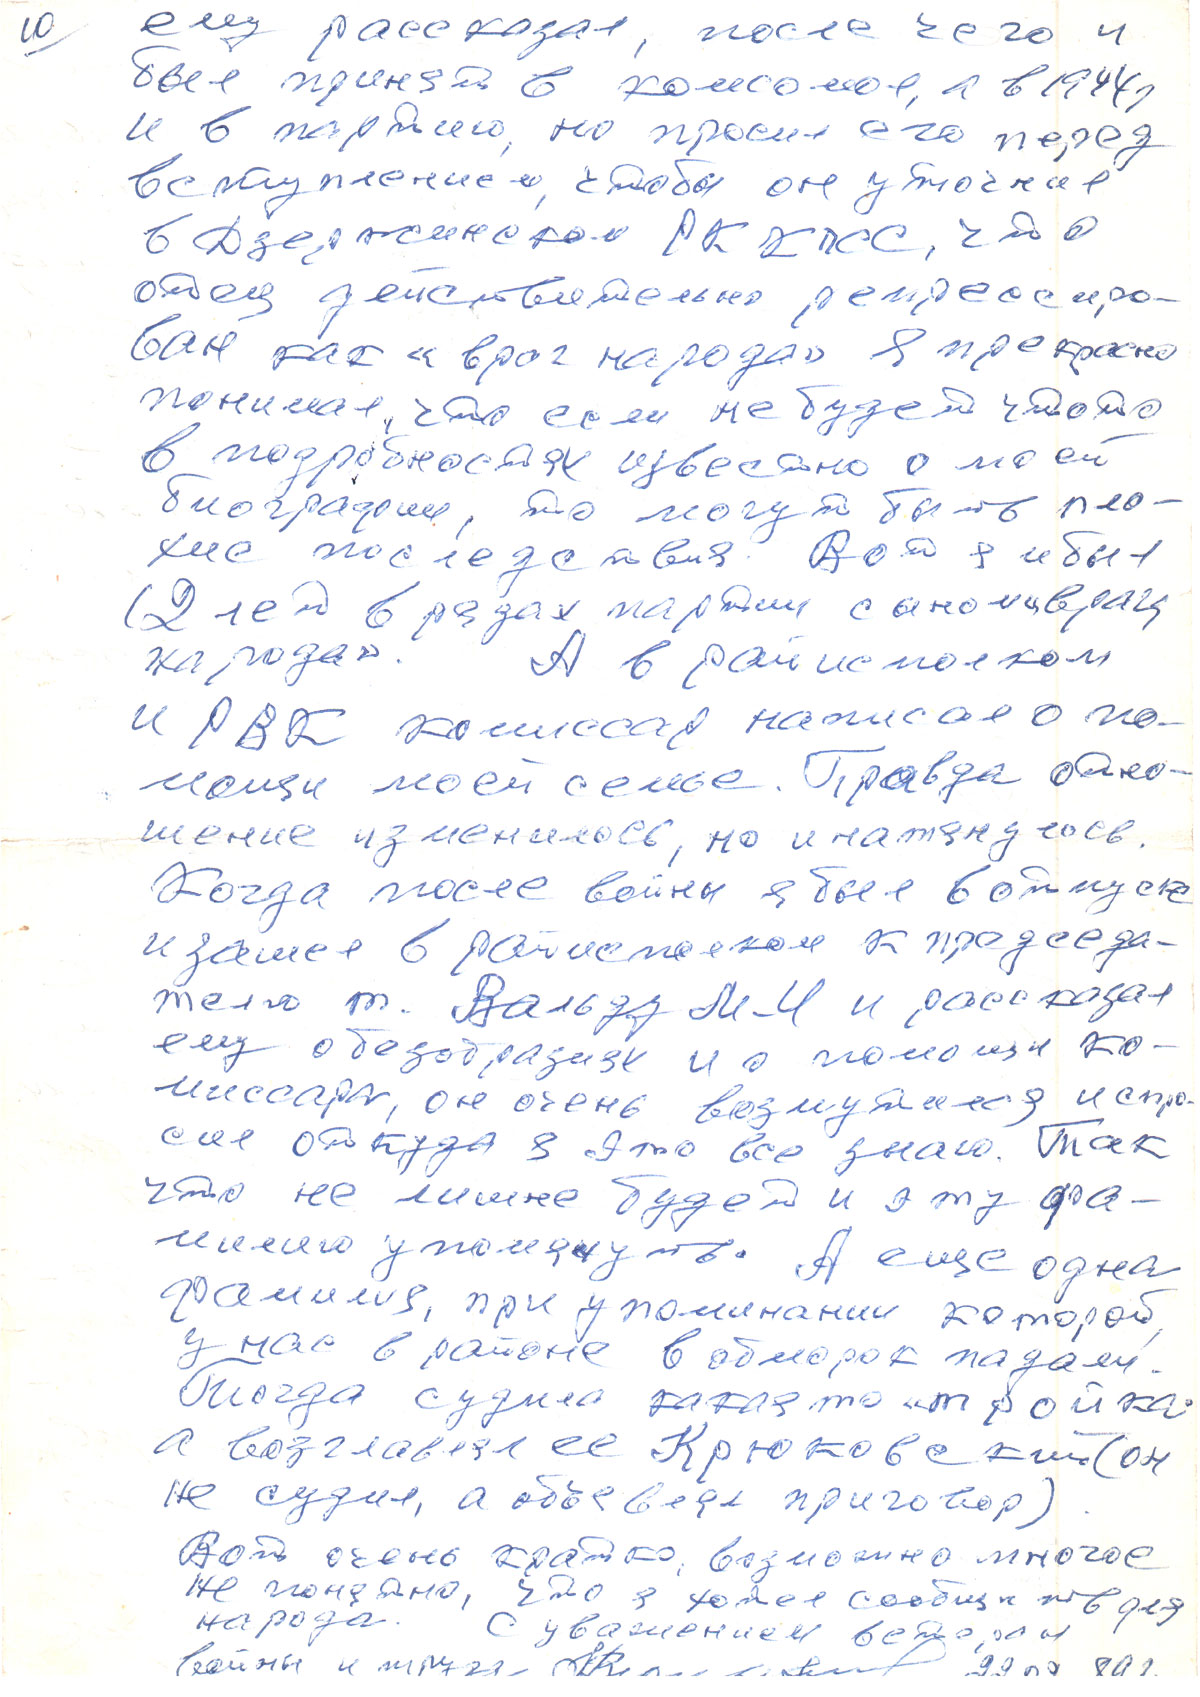 10 ему рассказал, после чего и
был принят в комсомол, а в 1944г
и в партию, но просил его перед
вступлением, чтобы он уточнил
в Дзержинском РК КПСС, что
отец действительно репрессиро-
ван как «враг народа» Я прекрасно
понимал, что если не будет что то
в подробностях известно о моей
биографии, то могут быть пло-
хие последствия. Вот я и был
12 лет в рядах партии сыном «врага
народа». А в райисполком
и РВК комиссар написал о по-
мощи моей семье. Правда отно-
шение изменилось, но и натянулось.
Когда после войны я был в отпуске
и зашел в райисполком к председа-
телю т. Вальду М-И и рассказал
ему о безобразиях и о помощи ко-
миссара, он очень возмутился и спро-
сил откуда я это все знаю. Так
что не лишне будет и эту фа-
милию упомянуть. А еще одна
фамилия, при упоминании которой,
у нас в районе в обморок падали.
Тогда судила какая то «тройка»
а возглавлял ее Крюковский (он
не судил, а объявлял приговор).
Вот очень кратко, возможно многое
не понятно, что я хотел сообщить для
народа. С уважением ветеран
войны и труда 89г.